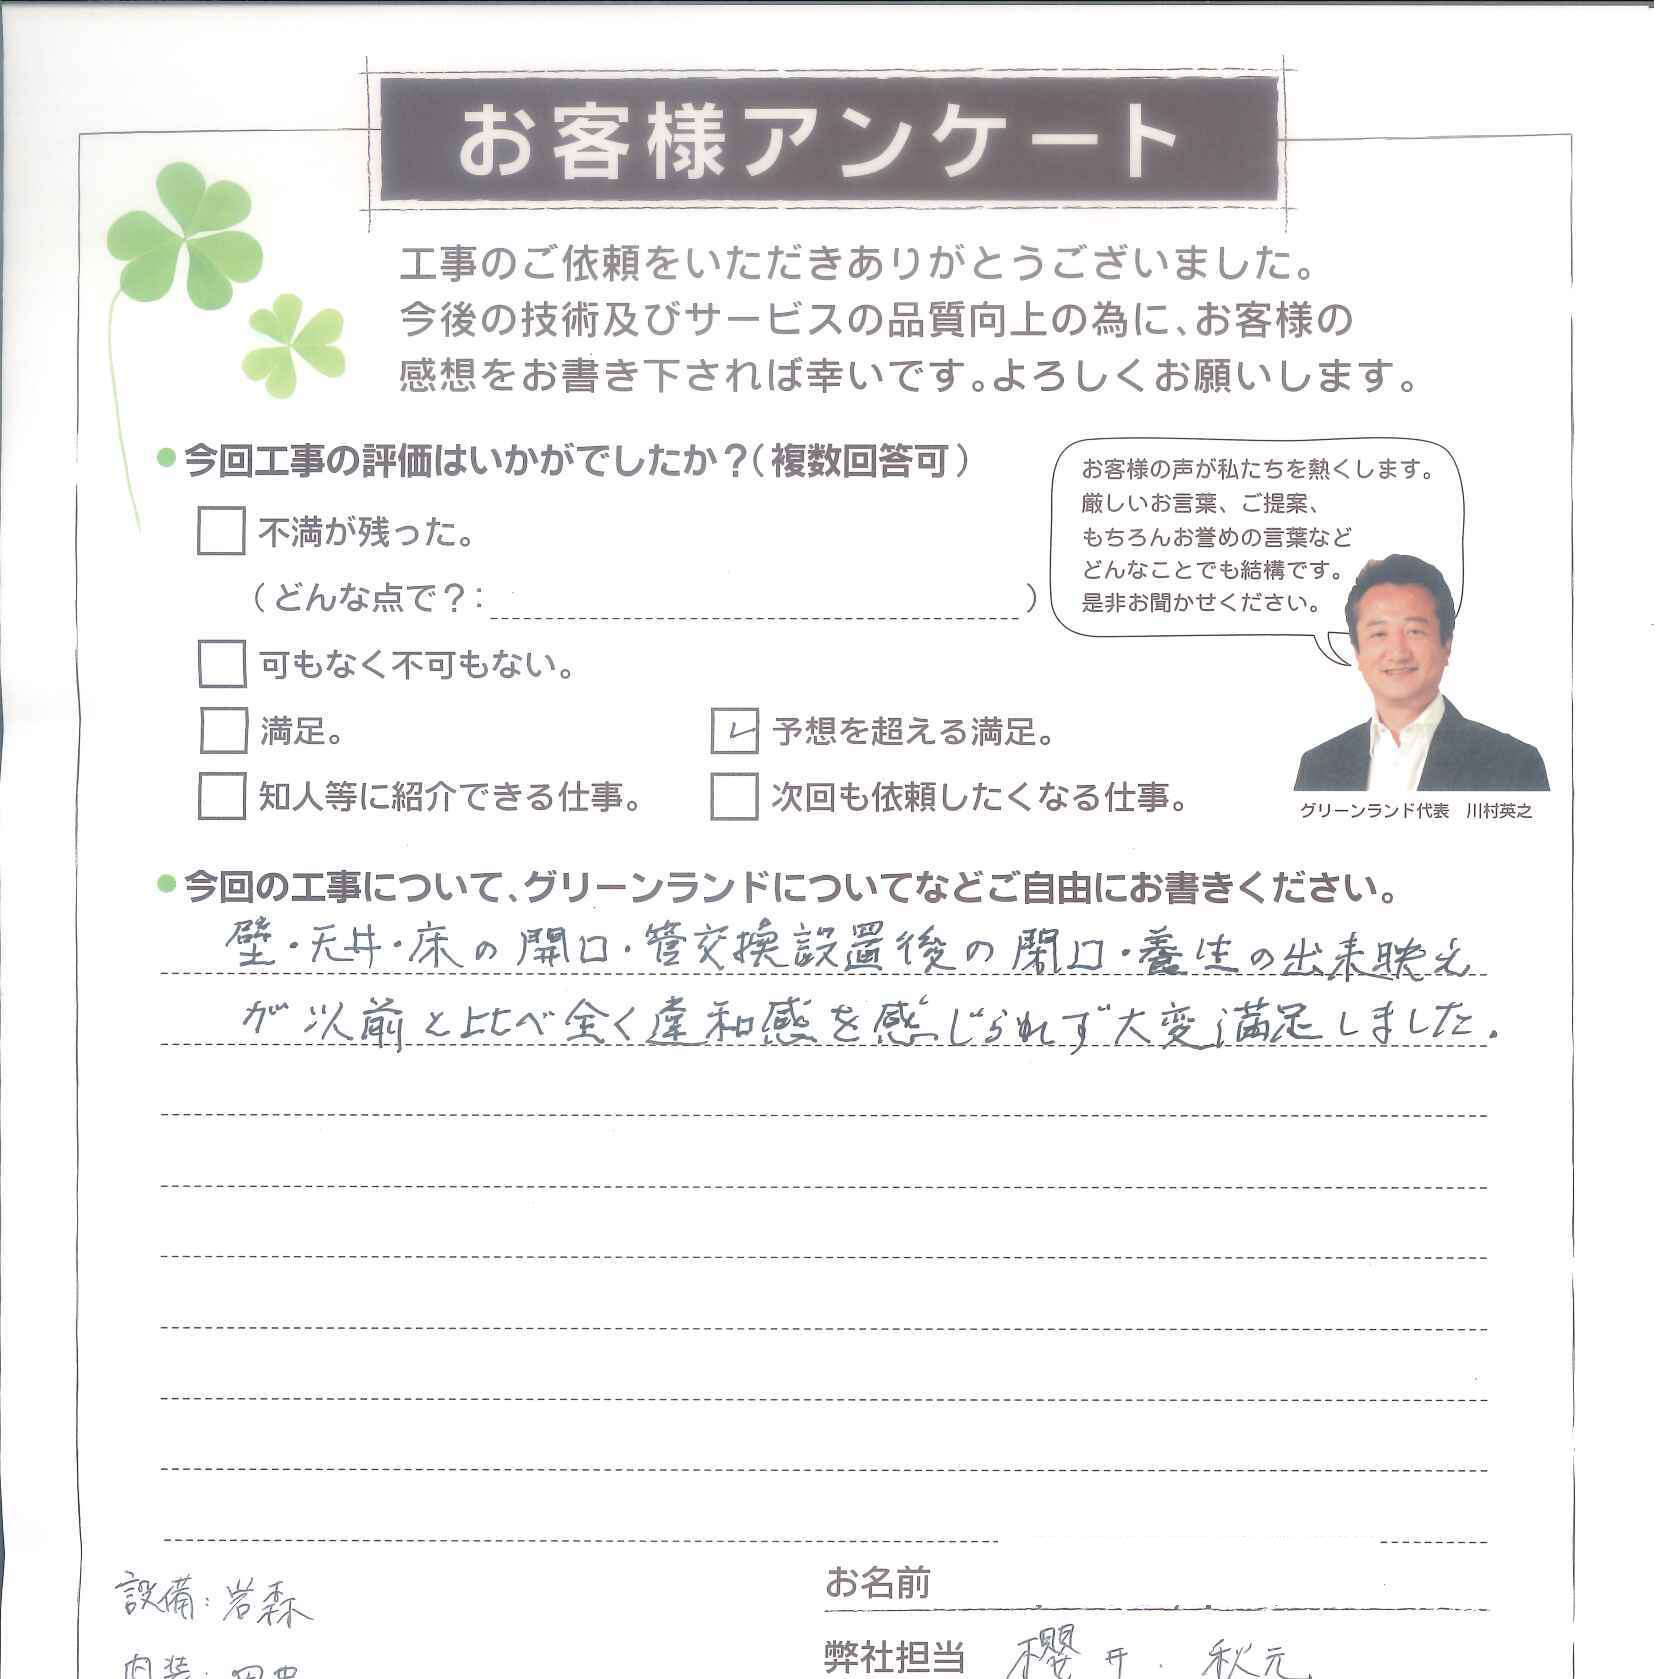 お客様アンケート
工事のご依頼をいただきありがとうございました。
今後の技術及びサービスの品質向上の為に、お客様の
感想をお書き下されば幸いです。よろしくお願いします。
●今回工事の評価はいかがでしたか？（複数回答可）
不満が残った。
（どんな点で？： ）
可もなく不可もない。
満足。
予想を超える満足。
知人等に紹介できる仕事。
次回も依頼したくなる仕事。
お客様の声が私たちを熱くします。
厳しいお言葉、ご提案、
もちろんお誉めの言葉など
どんなことでも結構です。
是非お聞かせください。
グリーンランド代表　川村英之
●今回の工事について、グリーンランドについてなどご自由にお書きください。
壁・天井・床の開口・管交換設置後の閉口・養生の出来映え
が以前と比べ全く違和感を感じられず大変満足しました.
設備：岩森
内装：
お名前
弊社担当　櫻井. 秋元